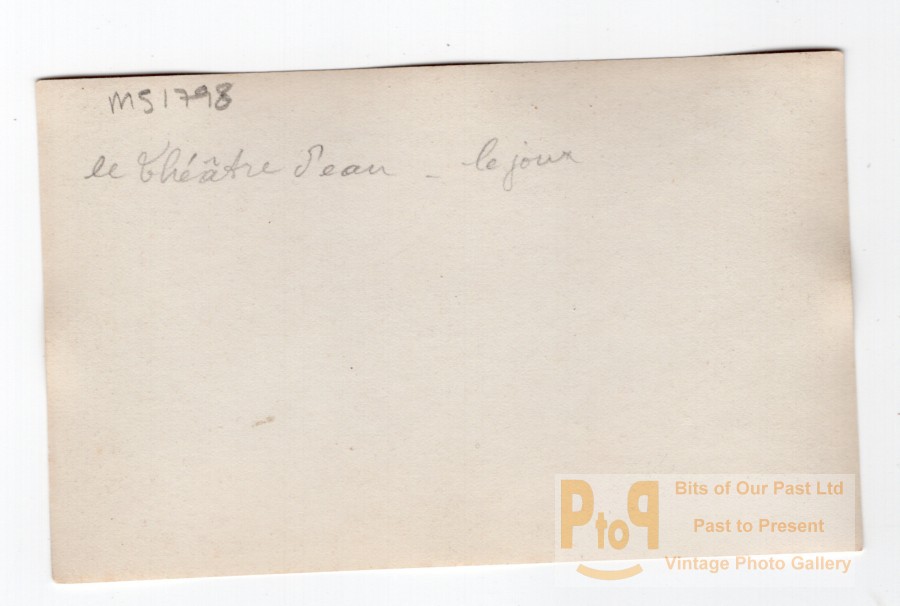 MS1798
le Théâtre d'eau - le jour
PtoP
Bits of Our Past Ltd
Past to Present
Vintage Photo Gallery